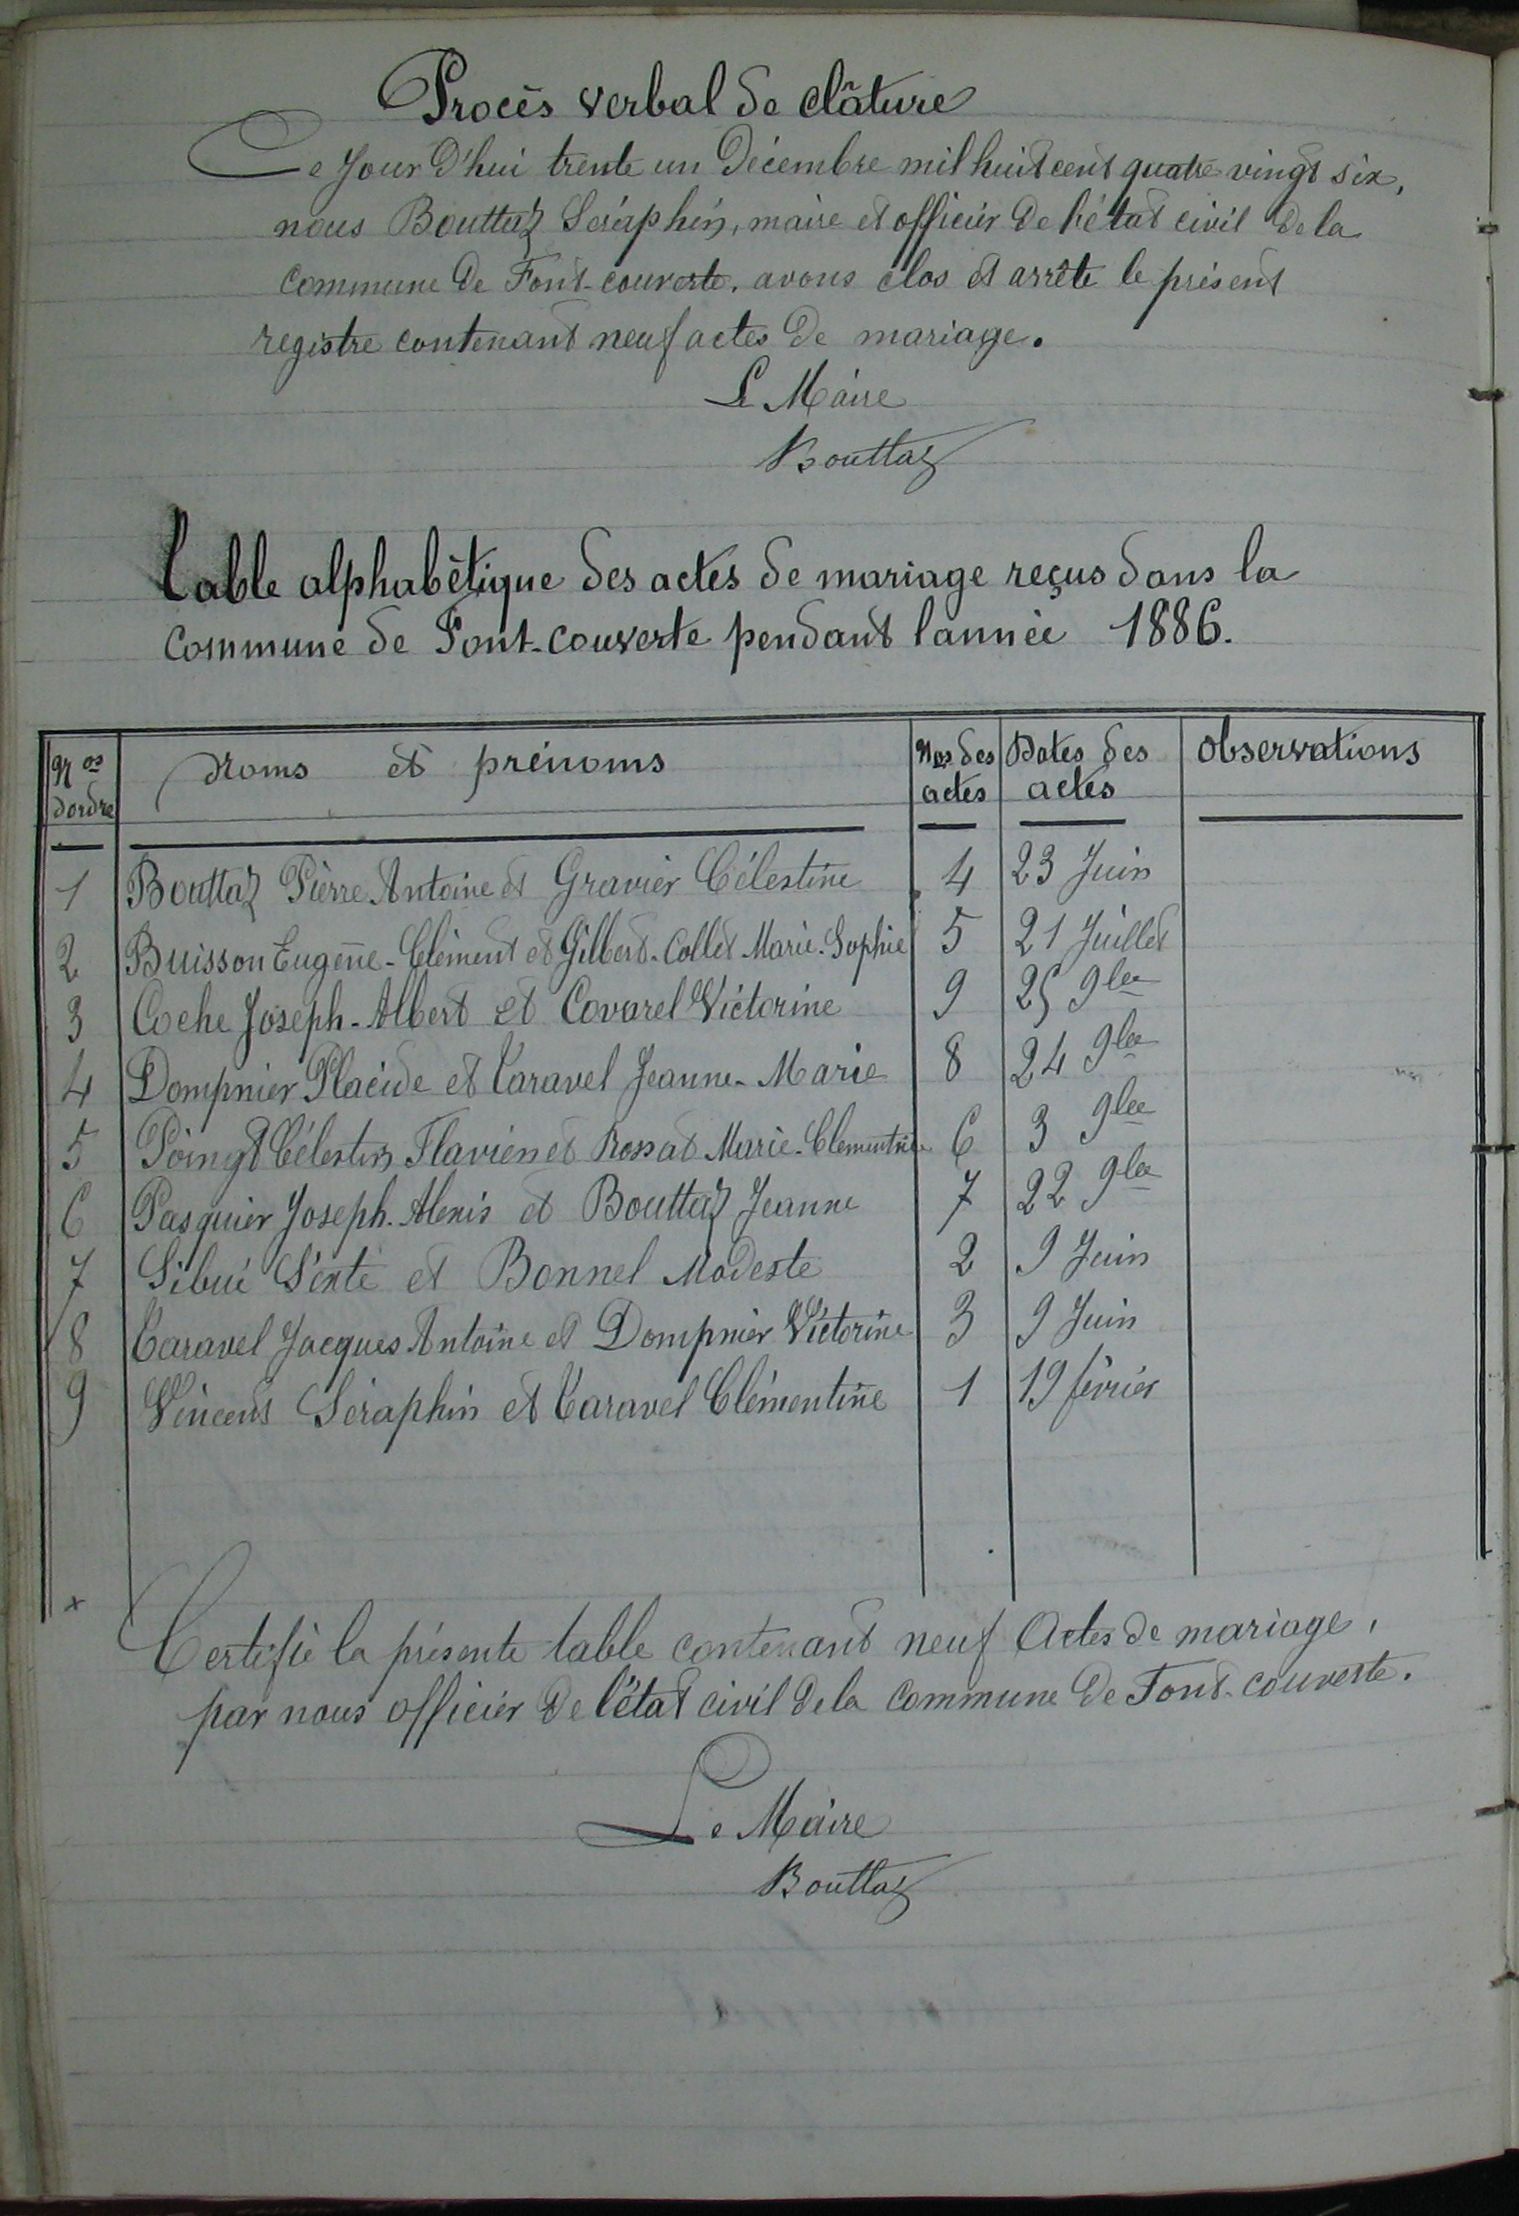 Procès verbal de clâture
Ce Jour d'hui trente un Décembre mil huit cent quatre vingt six,
nous Bouttaz Séraphin, maire et officier de l'état civil de la
commune de Font-couverte, avons clos et arrêté le présent
registre contenant neuf actes de mariage.
Le Maire
Bouttaz
Table alphabétique des actes de mariage reçus dans la
commune de Font-couverte pendant l'année 1886.
Nos d'ordre Noms et prénoms Nos des actes Dates des actes Observations
1 Bouttaz Pierre Antoine et Gravier Célestine 4 23 Juin
2 Buisson Eugène-Clément et Gilbert-Collet Marie-Sophie 5 21 Juillet
3 Coche Joseph-Albert et Covarel Victorine 9 25 9bre
4 Dompnier Placide et Taravel Jeanne-Marie 8 24 9bre
5 Poingt Célestin Flavien et Rossat Marie-Clementine 6 3 9bre
6 Pasquier Joseph-Alexis et Bouttaz Jeanne 7 22 9bre
7 Sibué Sixte et Bonnel Modeste 2 9 Juin
8 Taravel Jacques Antoine et Dompnier Victorine 3 9 Juin
9 Vincent Séraphin et Taravel Clémentine 1 19 février
Certifié la présente table contenant neuf Actes de mariage,
par nous officier de l'état civil de la commune de Font-couverte.
Le Maire
Bouttaz